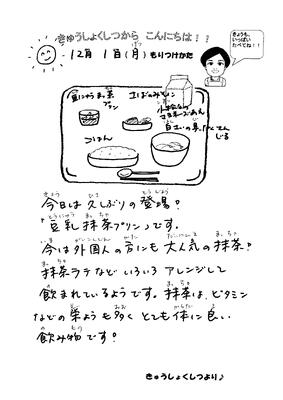 きゅうしょくしつから こんにちは！！
12月 1日(月) もりつけかた
きょうも、
いっぱい
たべてね！！
豆にゅうまっ茶
プリン
ごはん
今日は久しぶりの登場？
「豆乳抹茶プリン」です。
今は外国人の方にも大人気の抹茶？
抹茶ラテなどいろいろアレンジして
飲まれているようです。抹茶は、ビタミン
などの栄ようも多くとても体に良い
飲み物です！
きゅうしょくしつより♪